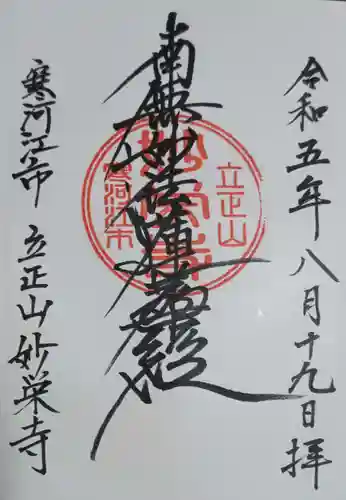 令和五年八月十九日拝
南無妙法蓮華経
立正山
妙栄寺
寒河江市
寒河江市 立正山妙栄寺